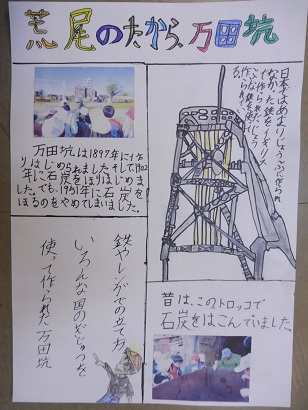 荒尾のたから、万田坑
万田坑は1897年に作
りはじめられました。そして、1902
年に石炭をほりはじめま
した。でも、1951年に石炭を
ほるのをやめてしまいました。
日本ではあまり
なかった鉄をイギリス
で作られた
鉄やレンガでの立て方
いろんな国のぎじゅつを
使って作られた万田坑
昔は、このトロッコで
石炭をはこんでいました。